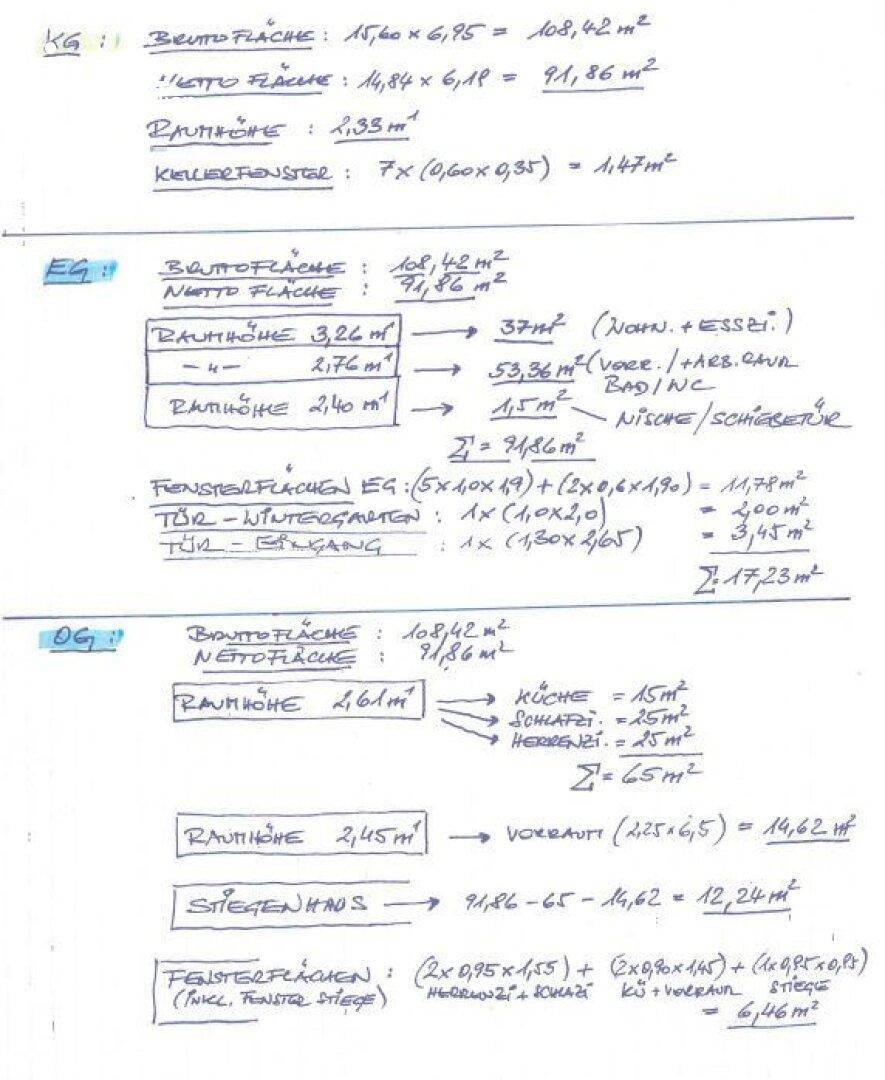 KG: BRUTTOFLÄCHE: 15,60 x 6,95 = 108,42 m²
NETTO FLÄCHE: 14,84 x 6,19 = 91,86 m²
RAUMHÖHE : 2,33 m¹
KELLERFENSTER: 7 x (0,60 x 0,35) = 1,47 m²
EG: BRUTTOFLÄCHE : 108,42 m²
NETTO FLÄCHE : 91,86 m²
RAUMHÖHE 3,26 m¹ → 37 m² (WOHN. + ESSZI.)
—"— 2,76 m¹ → 53,36 m² (VORR. / + ARB.RAUM
BAD/WC
RAUMHÖHE 2,40 m¹ → 1,5 m² NISCHE/SCHIEBETÜR
Σ = 91,86 m²
FENSTERFLÄCHEN EG: (5 x 1,0 x 1,9) + (2 x 0,6 x 1,90) = 11,78 m²
TÜR - WINTERGARTEN : 1 x (1,0 x 2,0) = 2,00 m²
TÜR - EINGANG : 1 x (1,30 x 2,65) = 3,45 m²
Σ = 17,23 m²
OG: BRUTTOFLÄCHE : 108,42 m²
NETTOFLÄCHE : 91,86 m²
RAUMHÖHE 2,61 m¹ → KÜCHE = 15 m²
→ SCHLAFZI. = 25 m²
→ HERRENZI. = 25 m²
Σ = 65 m²
RAUMHÖHE 2,45 m¹ → VORRAUM (2,25 x 6,5) = 14,62 m²
STIEGENHAUS → 91,86 - 65 - 14,62 = 12,24 m²
FENSTERFLÄCHEN : (2 x 0,95 x 1,55) + (2 x 0,90 x 1,45) + (1 x 0,95 x 0,95)
(INKL. FENSTER STIEGE) HERRENZI + SCHLAZI KÜ + VORRAUM STIEGE
= 6,46 m²